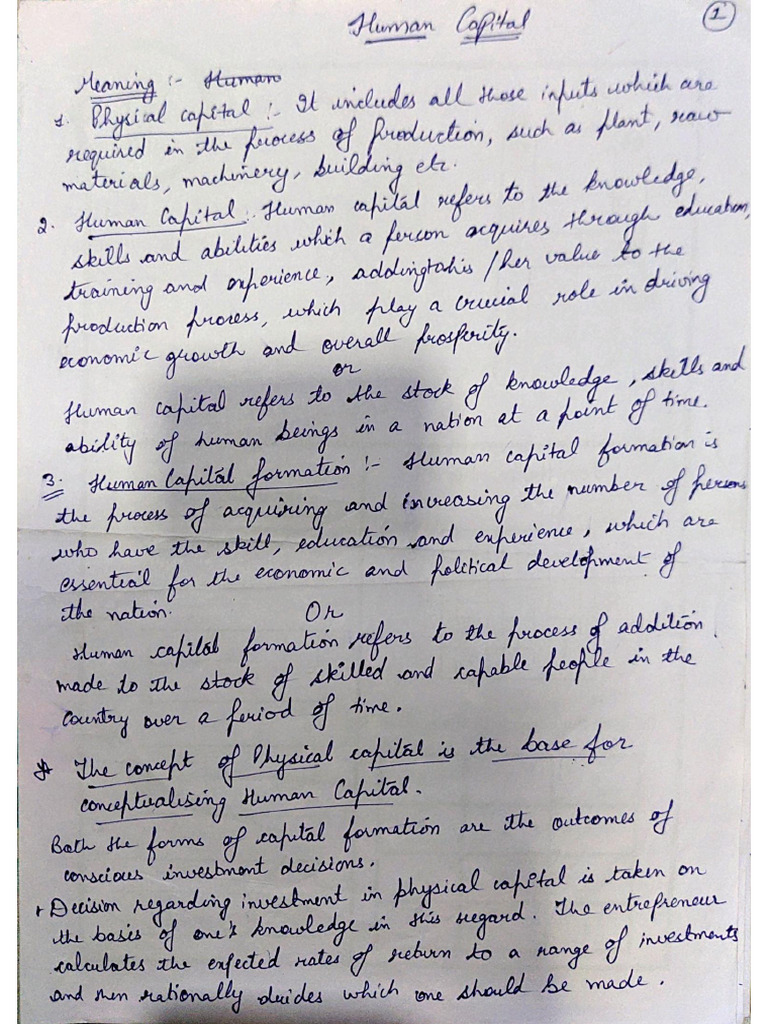 Human Capital
1
Meaning :- Human
1. Physical capital :- It includes all those inputs which are
required in the process of production, such as plant, raw
materials, machinery, building etc.
2. Human Capital :- Human capital refers to the knowledge,
skills and abilities which a person acquires through education,
training and experience, adding to his / her value to the
production process, which play a crucial role in driving
economic growth and overall prosperity.
or
Human capital refers to the stock of knowledge, skills and
ability of human beings in a nation at a point of time.
3. Human Capital formation :- Human capital formation is
the process of acquiring and increasing the number of persons
who have the skill, education and experience, which are
essential for the economic and political development of
the nation.
Or
Human capital formation refers to the process of addition
made to the stock of skilled and capable people in the
country over a period of time.
* The concept of Physical capital is the base for
conceptualising Human Capital.
Both the forms of capital formation are the outcomes of
conscious investment decisions.
+ Decision regarding investment in physical capital is taken on
the basis of one's knowledge in this regard. The entrepreneur
calculates the expected rates of return to a range of investments
and then rationally decides which one should be made.